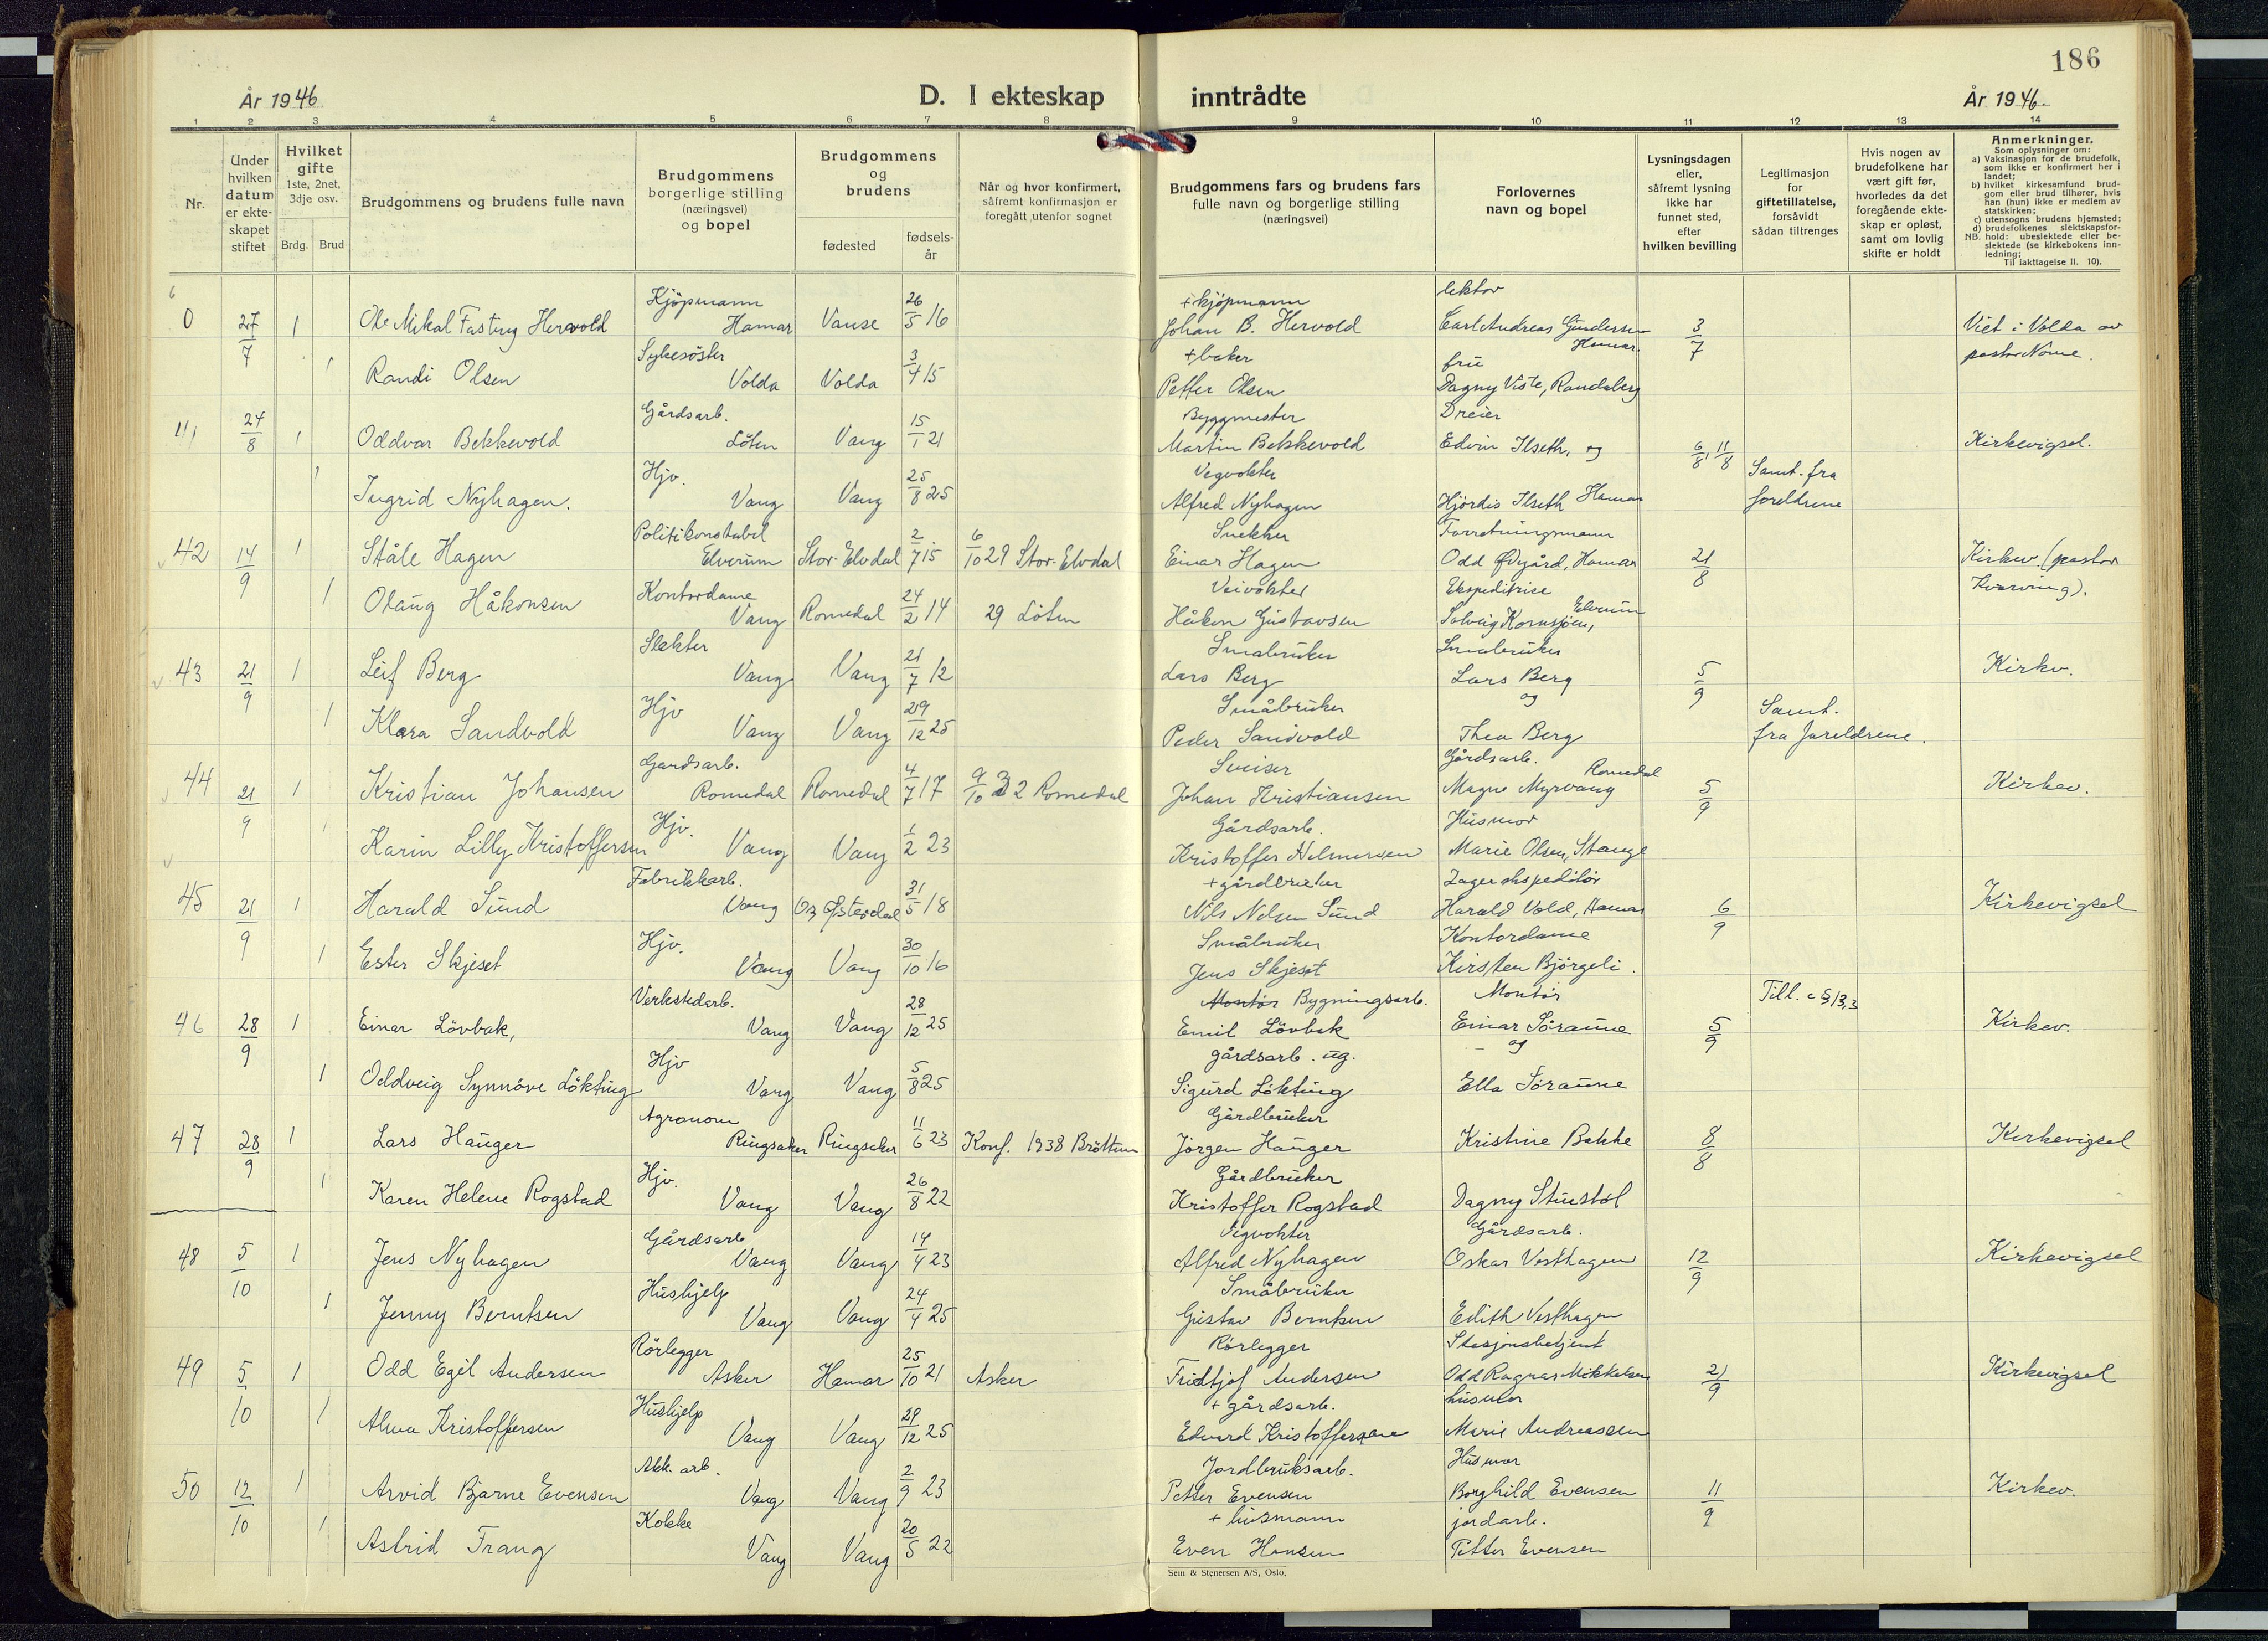 186
År 1946
D. I ekteskap inntrådte
År 1946.
1 2 3 4 5 6 7 8 9 10 11 12 13 14
Nr.
Under hvilken datum er ekteskapet stiftet
Hvilket gifte 1ste, 2net, 3dje osv.
Brdg. Brud
Brudgommens og brudens fulle navn
Brudgommens borgerlige stilling (næringsvei) og bopel
Brudgommens og brudens
fødested
fødsels-år
Når og hvor konfirmert, såfremt konfirmasjon er foregått utenfor sognet
Brudgommens fars og brudens fars fulle navn og borgerlige stilling (næringsvei)
Forlovernes navn og bopel
Lysningsdagen eller, såfremt lysning ikke har funnet sted, efter hvilken bevilling
Legitimasjon for giftetillatelse, forsåvidt sådan tiltrenges
Hvis nogen av brudefolkene har vært gift før, hvorledes da det foregående ekteskap er opløst, samt om lovlig skifte er holdt
Anmerkninger.
Som oplysninger om:
a) Vaksinasjon for de brudefolk, som ikke er konfirmert her i landet;
b) hvilket kirkesamfund brudgom eller brud tilhører, hvis han (hun) ikke er medlem av statskirken;
c) utensogns brudens hjemsted;
d) brudefolkenes slektskapsforhold: ubeslektede eller beslektede (se kirkebokens innledning;
NB. Til iakttagelse II. 10).
0 27/7 1 Ole Mikal Fasting Hervold Kjøpmann Hamar Vanse 26/5 16 + kjøpmann Johan B. Hervold lektor Carl Andreas Gundersen Hamar. 3/7 Viet i Volda av
1 Randi Olsen Sykesöster Volda Volda 3/4 15 + baker Petter Olsen fru Dagny Viste, Randaberg pastor Nome.
41 24/8 1 Oddvar Bekkevold Gårdsarb. Löten Vang 15/1 21 Byggmester Martin Bekkevold Dreier Edvin Ilseth, og 6/8, 11/8 Kirkevigsel.
1 Ingrid Nyhagen. Hjv. Vang Vang 25/8 25 Vegvokter Alfred Nyhagen Hjördis Ilseth Hamar Samt. fra foreldrene
42 14/9 1 Ståle Hagen Politikonstabel Elverum Stor-Elvdal 2/7 15 6/10 29 Stor-Elvdal Snekker Einar Hagen Forretningsmann Odd Øvgård, Hamar 21/8 Kirkev. (pastor
1 Olaug Håkonsen Kontordame Vang Romedal 24/2 14 29 Löten Veivokter Håkon Gustavsen Ekspeditrise Solveig Kornsjöen, Elverum Kvarving).
43 21/9 1 Leif Berg Slakter Vang Vang 21/7 12 Småbruker Lars Berg Småbruker Lars Berg 5/9 Kirkv.
1 Klara Sandvold Hjv Vang Vang 29/12 25 Småbruker Peder Sandvold og Thea Berg Samt. fra foreldrene.
44 21/9 1 Kristian Johansen Gardsarb. Romedal Romedal 4/7 17 9/10 32 Romedal Sveiser Johan Kristiansen Gårdsarb. Magne Myrvang Romedal 5/9 Kirkev.
1 Karin Lilly Kristoffersen Hjv. Vang Vang 1/2 23 Gårdsarb. Kristoffer Helmersen Husmor Marie Olsen, Stange
45 21/9 1 Harald Sund Fabrikkarb. Vang Os Østerdal 31/5 18 + gårdbruker Nils Nelsen Sund Lagerekspeditör Harald Vold, Hamar 6/9 Kirkevigsel
1 Ester Skjeset Hjv. Vang Vang 30/10 16 Småbruker Jens Skjeset Kontordame Kirsten Björgeli.
46 28/9 1 Einar Lövbak, Verkstedarb. Vang Vang 28/12 25 Montör Bygningsarb. Emil Lövbak Montör Einar Söraune 5/9 Till. e § 13,3 Kirkev.
1 Oddveig Synnöve Lökting Hjv Vang Vang 5/8 25 gårdsarb. ug. Sigurd Lökting og Ella Söraune
47 28/9 1 Lars Hauger Agronom Ringsaker Ringsaker 11/6 23 Konf. 1938 Bröttum Gårdbruker Jörgen Hauger Kristine Bakke 8/8 Kirkevigsel
1 Karen Helene Rogstad Hjv. Vang Vang 26/8 22 Gårdbruker Kristoffer Rogstad Dagny Stuestöl
48 5/10 1 Jens Nyhagen Gårdsarb Vang Vang 14/4 23 Vegvokter Alfred Nyhagen Gårdsarb. Oskar Vesthagen 12/9 Kirkevigsel
1 Jenny Berntsen Hushjelp Vang Vang 24/4 25 Småbruker Gustav Berntsen Edith Vesthagen
49 5/10 1 Odd Egil Andersen Rörlegger Asker Hamar 25/10 21 Asker Rörlegger Fridtjof Andersen Stasjonsbetjent Odd Ragnar Mikkelsen 21/9 Kirkevigsel
1 Alma Kristoffersen Hushjelp Vang Vang 29/12 25 + gårdsarb. Edvard Kristoffersen husmor Marie Andreassen
50 12/10 1 Arvid Bjarne Evensen Akk. arb. Vang Vang 2/9 23 Jordbruksarb. Petter Evensen Husmor Borghild Evensen 11/9 Kirkev.
1 Astrid Trang Kokke Vang Vang 20/5 22 + husmann Even Hansen jordarb. Petter Evensen
Sem & Stenersen A/S, Oslo.